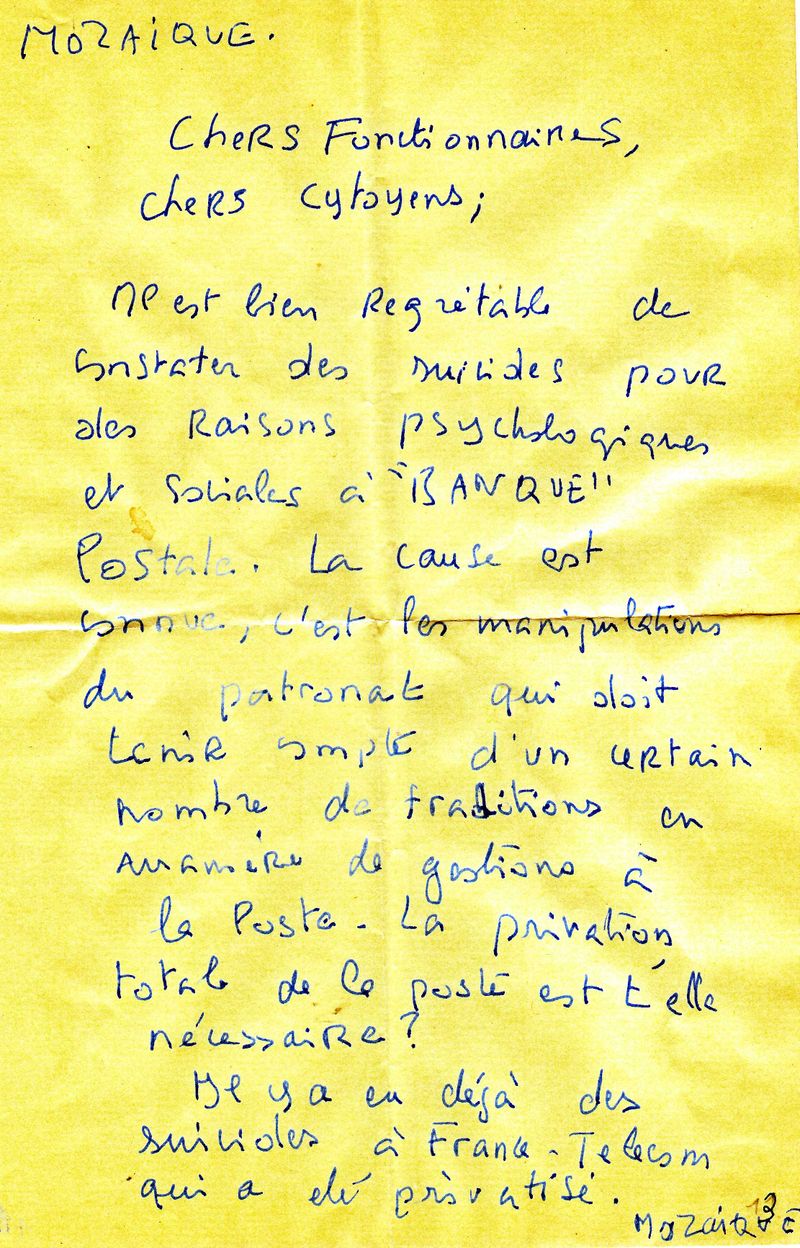 MOZAIQUE.
Chers Fonctionnaires,
Chers Cytoyens;
Il est bien Regrétable de
constater des suicides pour
des Raisons psychologiques
et sociales à "BANQUE"
Postale. La cause est
connue, c'est les manipulations
du patronat qui doit
tenir compte d'un certain
nombre de traditions en
manière de gestions à
la Poste. La privation
totale de la poste est t'elle
nécessaire?
Il y a eu déjà des
suicides à France-Telecom
qui a été privatisé.
MOZAIQUE